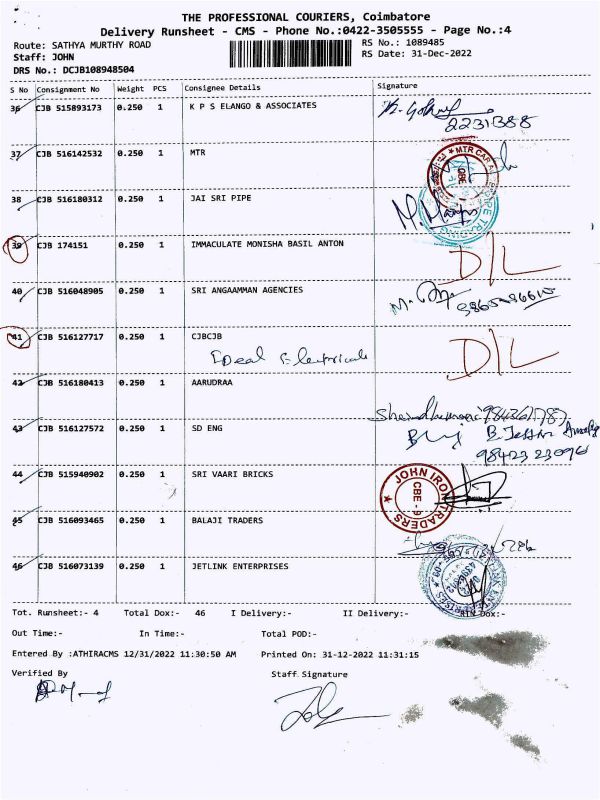 THE PROFESSIONAL COURIERS, Coimbatore
Delivery Runsheet - CMS - Phone No.:0422-3505555 - Page No.:4
Route: SATHYA MURTHY ROAD RS No.: 1089485
Staff: JOHN RS Date: 31-Dec-2022
DRS No.: DCJB108948504
S No Consignment No Weight PCS Consignee Details Signature
36 CJB 515893173 0.250 1 K P S ELANGO & ASSOCIATES
2231388
37 CJB 516142532 0.250 1 MTR
38 CJB 516180312 0.250 1 JAI SRI PIPE
39 CJB 174151 0.250 1 IMMACULATE MONISHA BASIL ANTON D/L
40 CJB 516048905 0.250 1 SRI ANGAAMMAN AGENCIES
41 CJB 516127717 0.250 1 CJBCJB D/L
Ideal Electricals
42 CJB 516180413 0.250 1 AARUDRAA
43 CJB 516127572 0.250 1 SD ENG
98423 23096
44 CJB 515940902 0.250 1 SRI VAARI BRICKS
JOHN IRON TRADERS CBE - 9
45 CJB 516093465 0.250 1 BALAJI TRADERS
46 CJB 516073139 0.250 1 JETLINK ENTERPRISES
Tot. Runsheet:- 4 Total Dox:- 46 I Delivery:- II Delivery:- RTN Dox:-
Out Time:- In Time:- Total POD:-
Entered By :ATHIRACMS 12/31/2022 11:30:50 AM Printed On: 31-12-2022 11:31:15
Verified By Staff Signature